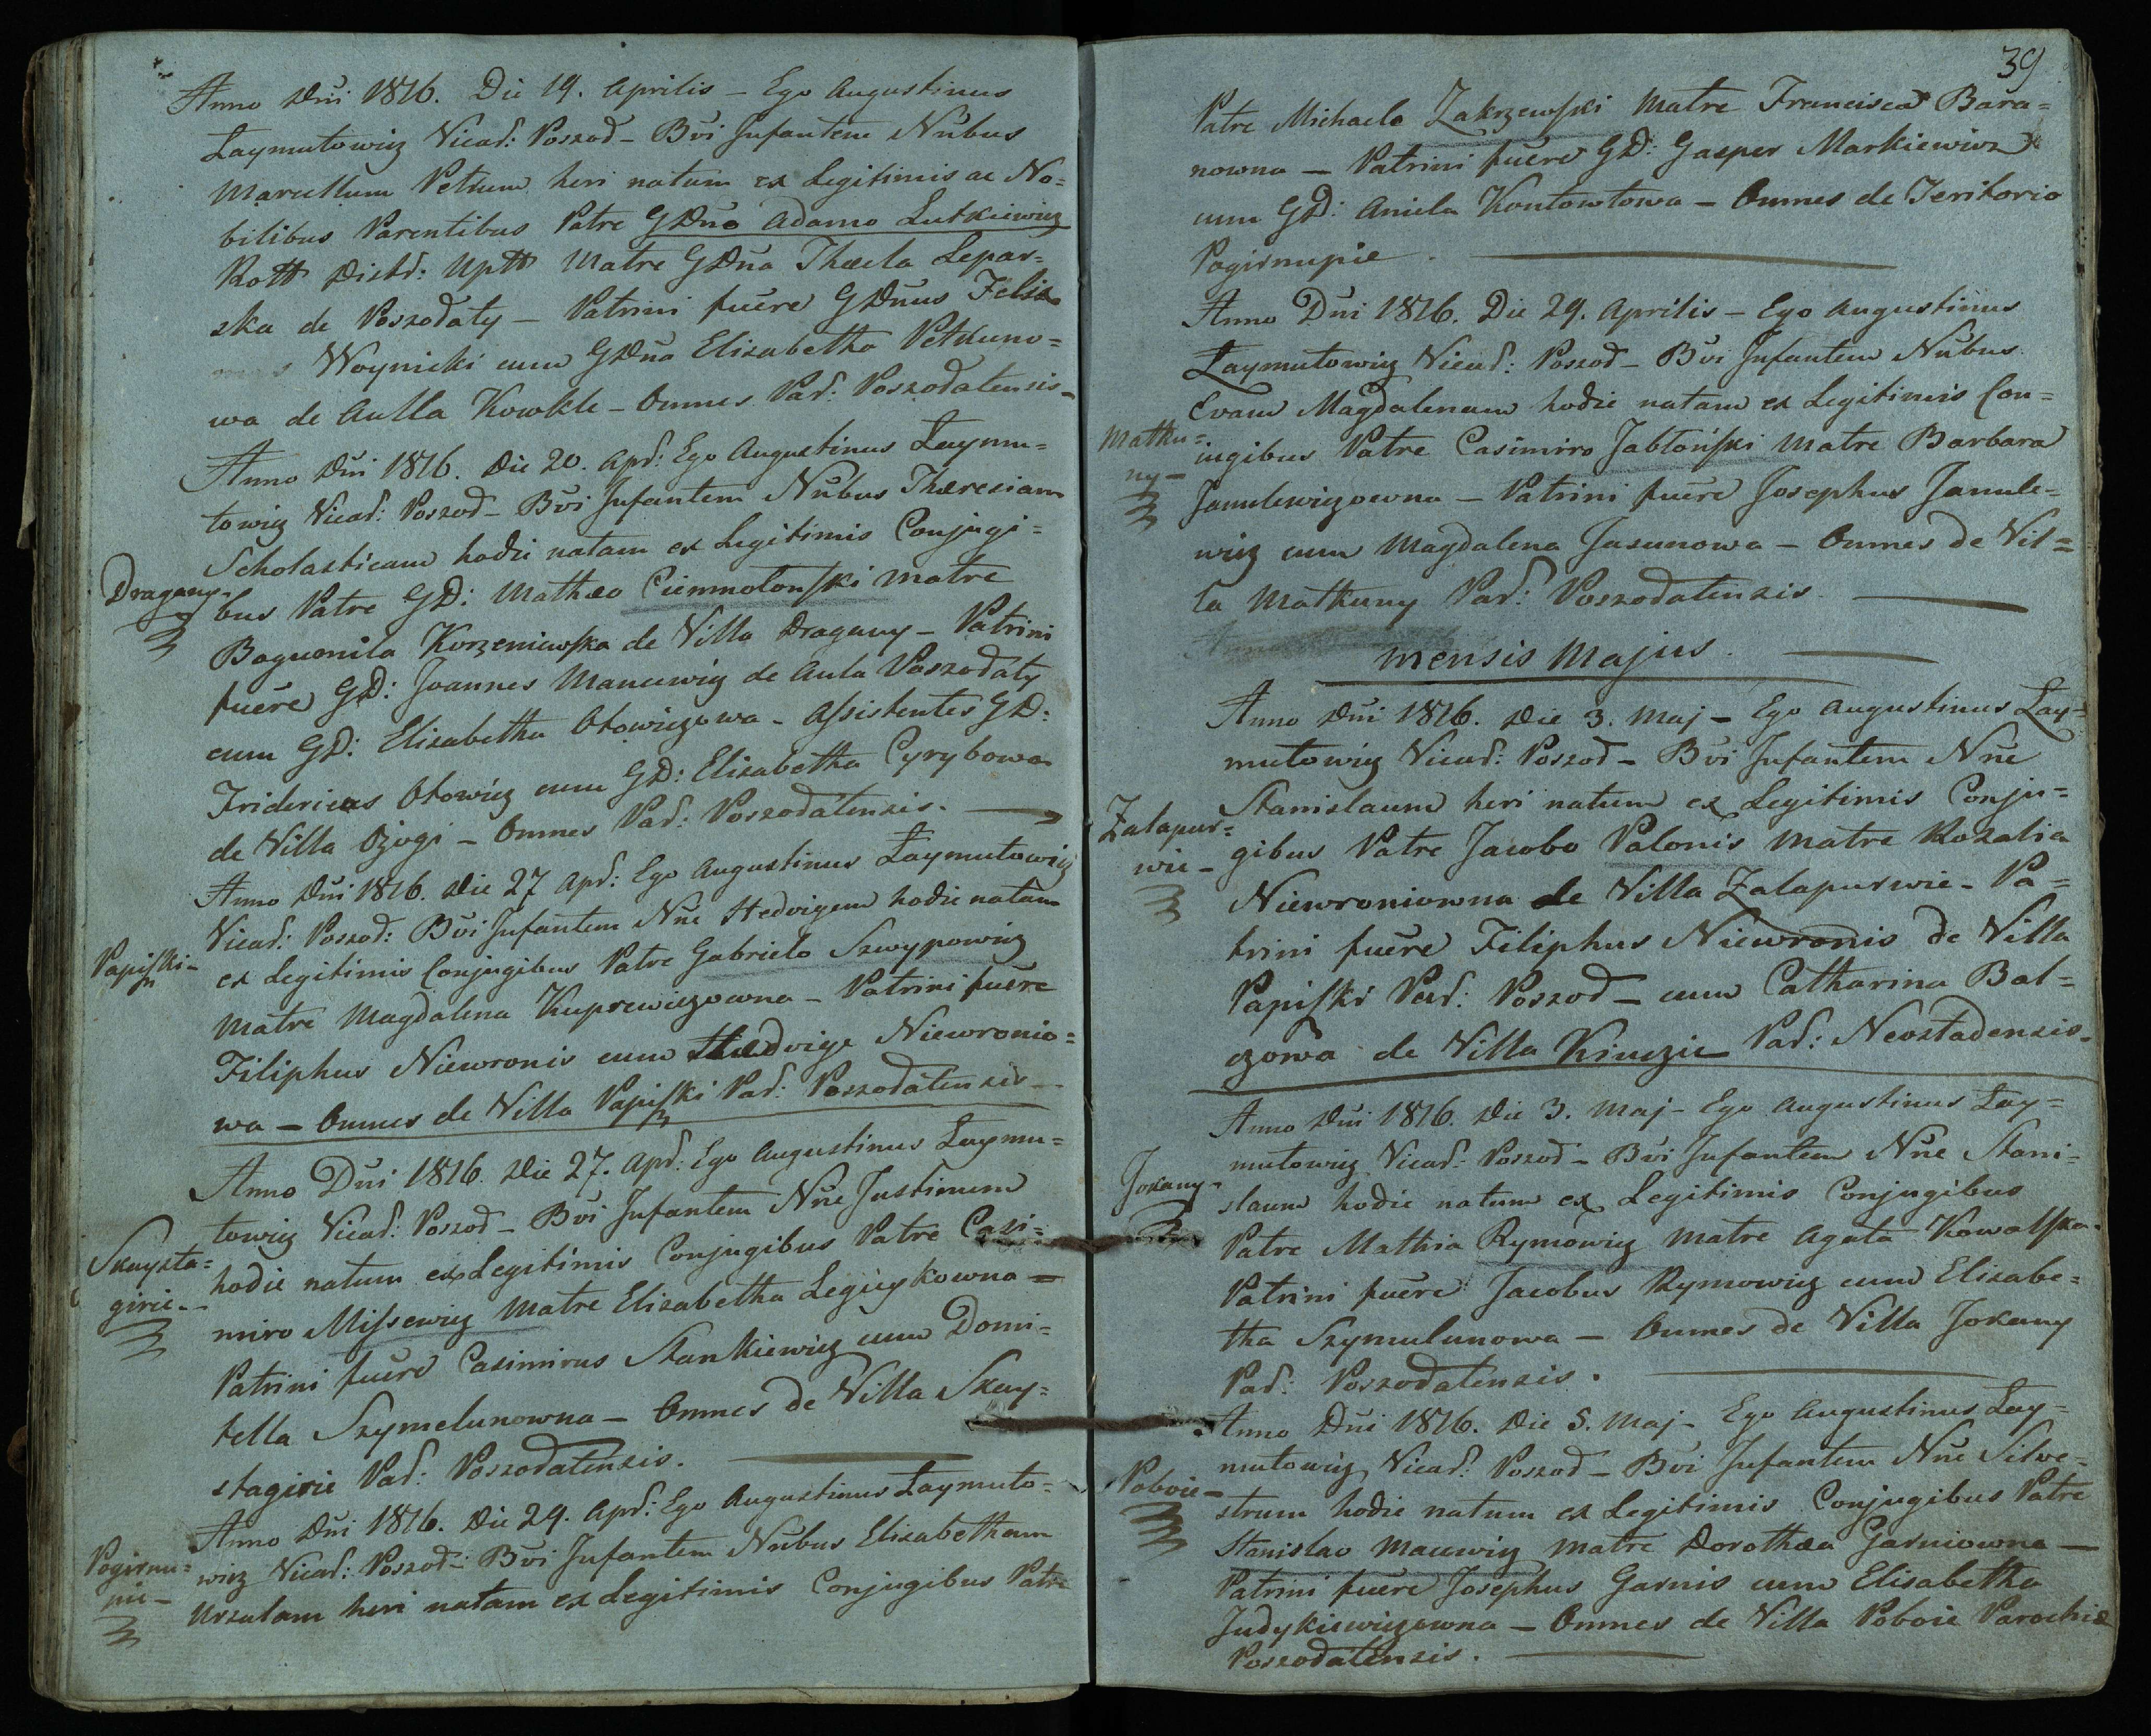 Anno Dñi 1816. Die 19. Aprilis – Ego Augustinus
Laymutowicz Vicar: Poszod – Bvi Infantem Nõbus
Marcellum Petrum heri natum ex Legitimis ac No=
bilibus Parentibus Patre GDño Adamo Lutkiewicz
Rott Distr: Uptt Matre GDña Thecla Lepar=
ska de Poszodaty – Patrini fuere GDñus Felix
Woynicki cum GDña Elisabetha Petkuno=
wa de Aulla Kowkle – Omnes Par: Poszodatensis –
Anno Dñi 1816. Die 20. Apr: Ego Augustinus Laymu=
towicz Vicar: Poszod – Bvi Infantem Nõbus Theresiam
Scholasticam hodie natam ex Legitimis Conjugi=
Dragany –
bus Patre GD: Mathæo Ciemnotoński Matre
Bogumila Korzeniewska de Villa Dragany – Patrini
fuere GD: Joannes Mancewicz de Aula Poszodaty
cum GD: Elisabetha Otowiczowa – Assistentes GD:
Fridericus Otowicz cum GD: Elisabetha Cyrybowa
de Villa Ożogi – Omnes Par: Poszodatensis.
Anno Dñi 1816. Die 27 Apr: Ego Augustinus Laymutowicz
Vicar: Poszod: Bvi Infantem Nñe Hedvigem hodie natam
Papiszki –
ex Legitimis Conjugibus Patre Gabriele Szwypowicz
Matre Magdalena Kuprewiczowna – Patrini fuere
Filiphus Niewronis cum Hedvige Niewronio=
wa – Omnes de Villa Papiszki Par: Poszodatensis –
Anno Dñi 1816. Die 27. Apr: Ego Augustinus Laymu=
towicz Vicar: Poszod – Bvi Infantem Nñe Justinum
Skaysta=
girie –
hodie natum ex Legitimis Conjugibus Patre Casi=
miro Missewicz Matre Elisabetha Legieykowna –
Patrini fuere Casimirus Stankiewicz cum Domi=
tella Szymelunowna – Omnes de Villa Skay=
stagirie Par: Poszodatensis.
Anno Dñi 1816. Die 29. Apr: Ego Augustinus Laymuto=
Pogirnu=
pie –
wicz Vicar: Poszod – Bvi Infantem Nõbus Elisabetham
Urzulam heri natam ex Legitimis Conjugibus Patre
39
Patre Michaele Zakrzewski Matre Francisca Bara=
nowna – Patrini fuere GD: Gasper Markiewicz
cum GD: Aniela Kontowtowa – Omnes de Teritorio
Pogirnupie.
Anno Dñi 1816. Die 29. Aprilis – Ego Augustinus
Laymutowicz Vicar: Poszod – Bvi Infantem Nõbus
Evam Magdalenam hodie natam ex Legitimis Con=
Matku=
ny –
iugibus Patre Casimiro Jabłoński Matre Barbara
Janulewiczowna – Patrini fuere Josephus Janule=
wicz cum Magdalena Jasunowa – Omnes de Vil=
la Matkuny Par: Poszodatensis.
Mensis Majus.
Anno Dñi 1816. Die 3. Maj – Ego Augustinus Lay=
mutowicz Vicar: Poszod – Bvi Infantem Nñe
Stanislaum heri natum ex Legitimis Conju=
Zalapur=
wie –
gibus Patre Jacobo Palonis Matre Rozalia
Niewroniowna de Villa Zalapurwie – Pa=
trini fuere Filiphus Niewronis de Villa
Papiszki Par: Poszod – cum Catharina Bal=
czowa de Villa Kinczie Par: Neostadensis –
Anno Dñi 1816. Die 3. Maj – Ego Augustinus Lay=
Jokany –
mutowicz Vicar: Poszod – Bvi Infantem Nñe Stani=
slaum hodie natum ex Legitimis Conjugibus
Patre Mathia Rymowicz Matre Agata Kowalska –
Patrini fuere Jacobus Rymowicz cum Elisabe=
tha Szymulunowa – Omnes de Villa Jokany
Par: Poszodatensis.
Anno Dñi 1816. Die 5. Maj – Ego Augustinus Lay=
mutowicz Vicar: Poszod – Bvi Infantem Nñe Silve=
Poboie –
strum hodie natum ex Legitimis Conjugibus Patre
Stanislao Macewicz Matre Dorothea Garniowna –
Patrini fuere Josephus Garnis cum Elisabetha
Judykiewiczowna – Omnes de Villa Poboie Parochiæ
Poszodatensis.